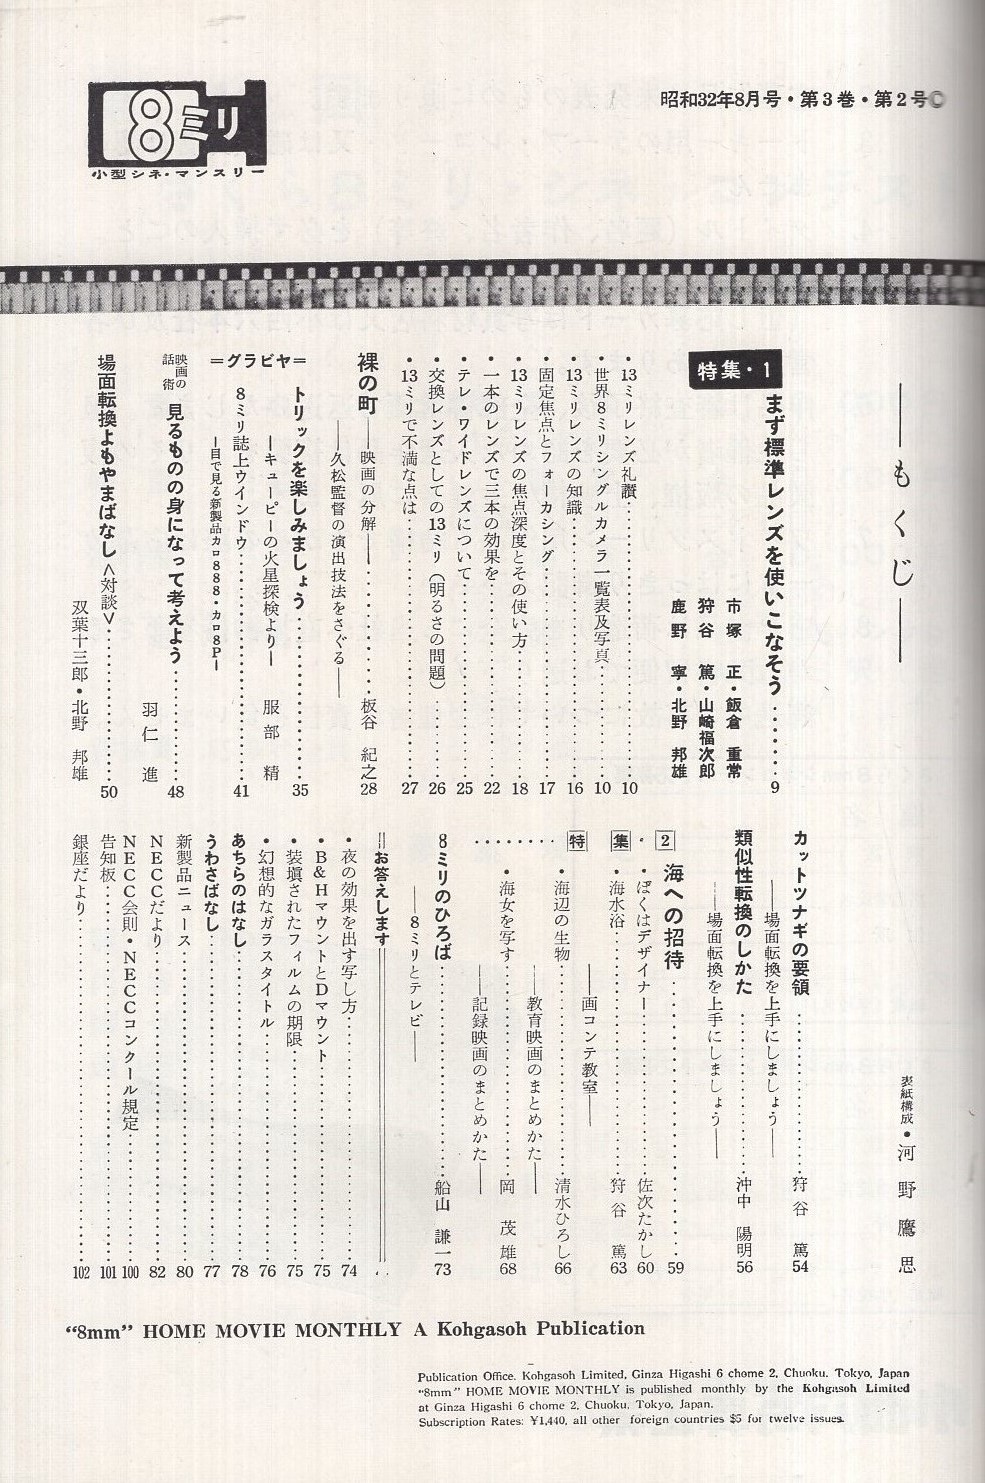 昭和32年8月号・第3巻・第2号
8ミリ
小型シネ・マンスリー
――もくじ――
表紙構成・河野鷹思
特集・1
まず標準レンズを使いこなそう……9
市塚 正・飯倉 重常
狩谷 篤・山崎福次郎
鹿野 寧・北野 邦雄
・13ミリレンズ礼讃……10
・世界8ミリシングルカメラ一覧表及写真……10
・13ミリレンズの知識……16
・固定焦点とフォーカシング……17
・13ミリレンズの焦点深度とその使い方……18
・一本のレンズで三本の効果を……22
・テレ・ワイドレンズについて……25
・交換レンズとしての13ミリ(明るさの問題)……26
・13ミリで不満な点は……27
裸の町――映画の分解――……板谷 紀之 28
――久松監督の演出技法をさぐる――
=グラビヤ=
トリックを楽しみましょう……35
―キューピーの火星探検より― 服部 精
8ミリ誌上ウインドウ……41
―目で見る新製品カロ888・カロ8P―
映画の話術 見るものの身になって考えよう……48
羽仁 進
場面転換よもやまばなし<対談>……50
双葉十三郎・北野 邦雄
カットツナギの要領……狩谷 篤 54
――場面転換を上手にしましょう――
類似性転換のしかた……沖中 陽明 56
――場面転換を上手にしましょう――
特集・2
海への招待……59
・ぼくはデザイナー……佐次たかし 60
・海水浴……狩谷 篤 63
――画コンテ教室――
・海辺の生物……清水ひろし 66
――教育映画のまとめかた――
・海女を写す……岡 茂雄 68
――記録映画のまとめかた――
8ミリのひろば……船山 謙一 73
――8ミリとテレビ――
=お答えします=
・夜の効果を出す写し方……74
・B&HマウントとDマウント……75
・装塡されたフィルムの期限……75
・幻想的なガラスタイトル……76
あちらのはなし……78
うわさばなし……77
新製品ニュース……80
NECCだより……82
NECC会則・NECCコンクール規定……100
告知板……101
銀座だより……102
"8mm" HOME MOVIE MONTHLY A Kohgasoh Publication
Publication Office. Kohgasoh Limited, Ginza Higashi 6 chome 2, Chuoku. Tokyo, Japan
"8mm" HOME MOVIE MONTHLY is published monthly by the Kohgasoh Limited
at Ginza Higashi 6 chome 2, Chuoku, Tokyo, Japan.
Subscription Rates: ¥1,440, all other foreign countries $5 for twelve issues.